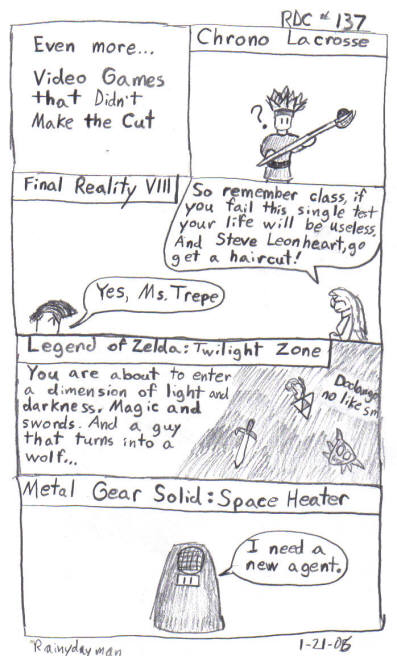 RDC # 137
Even more...
Video Games
that Didn't
Make the Cut
Chrono Lacrosse
?
Final Reality VIII
So remember class, if
you fail this single test
your life will be useless.
And Steve Leonheart, go
get a haircut!
Yes, Ms. Trepe
Legend of Zelda: Twilight Zone
You are about to enter
a dimension of light and
darkness. Magic and
swords. And a guy
that turns into a
wolf...
no like
Metal Gear Solid: Space Heater
I need a
new agent.
Rainyday man
1-21-08